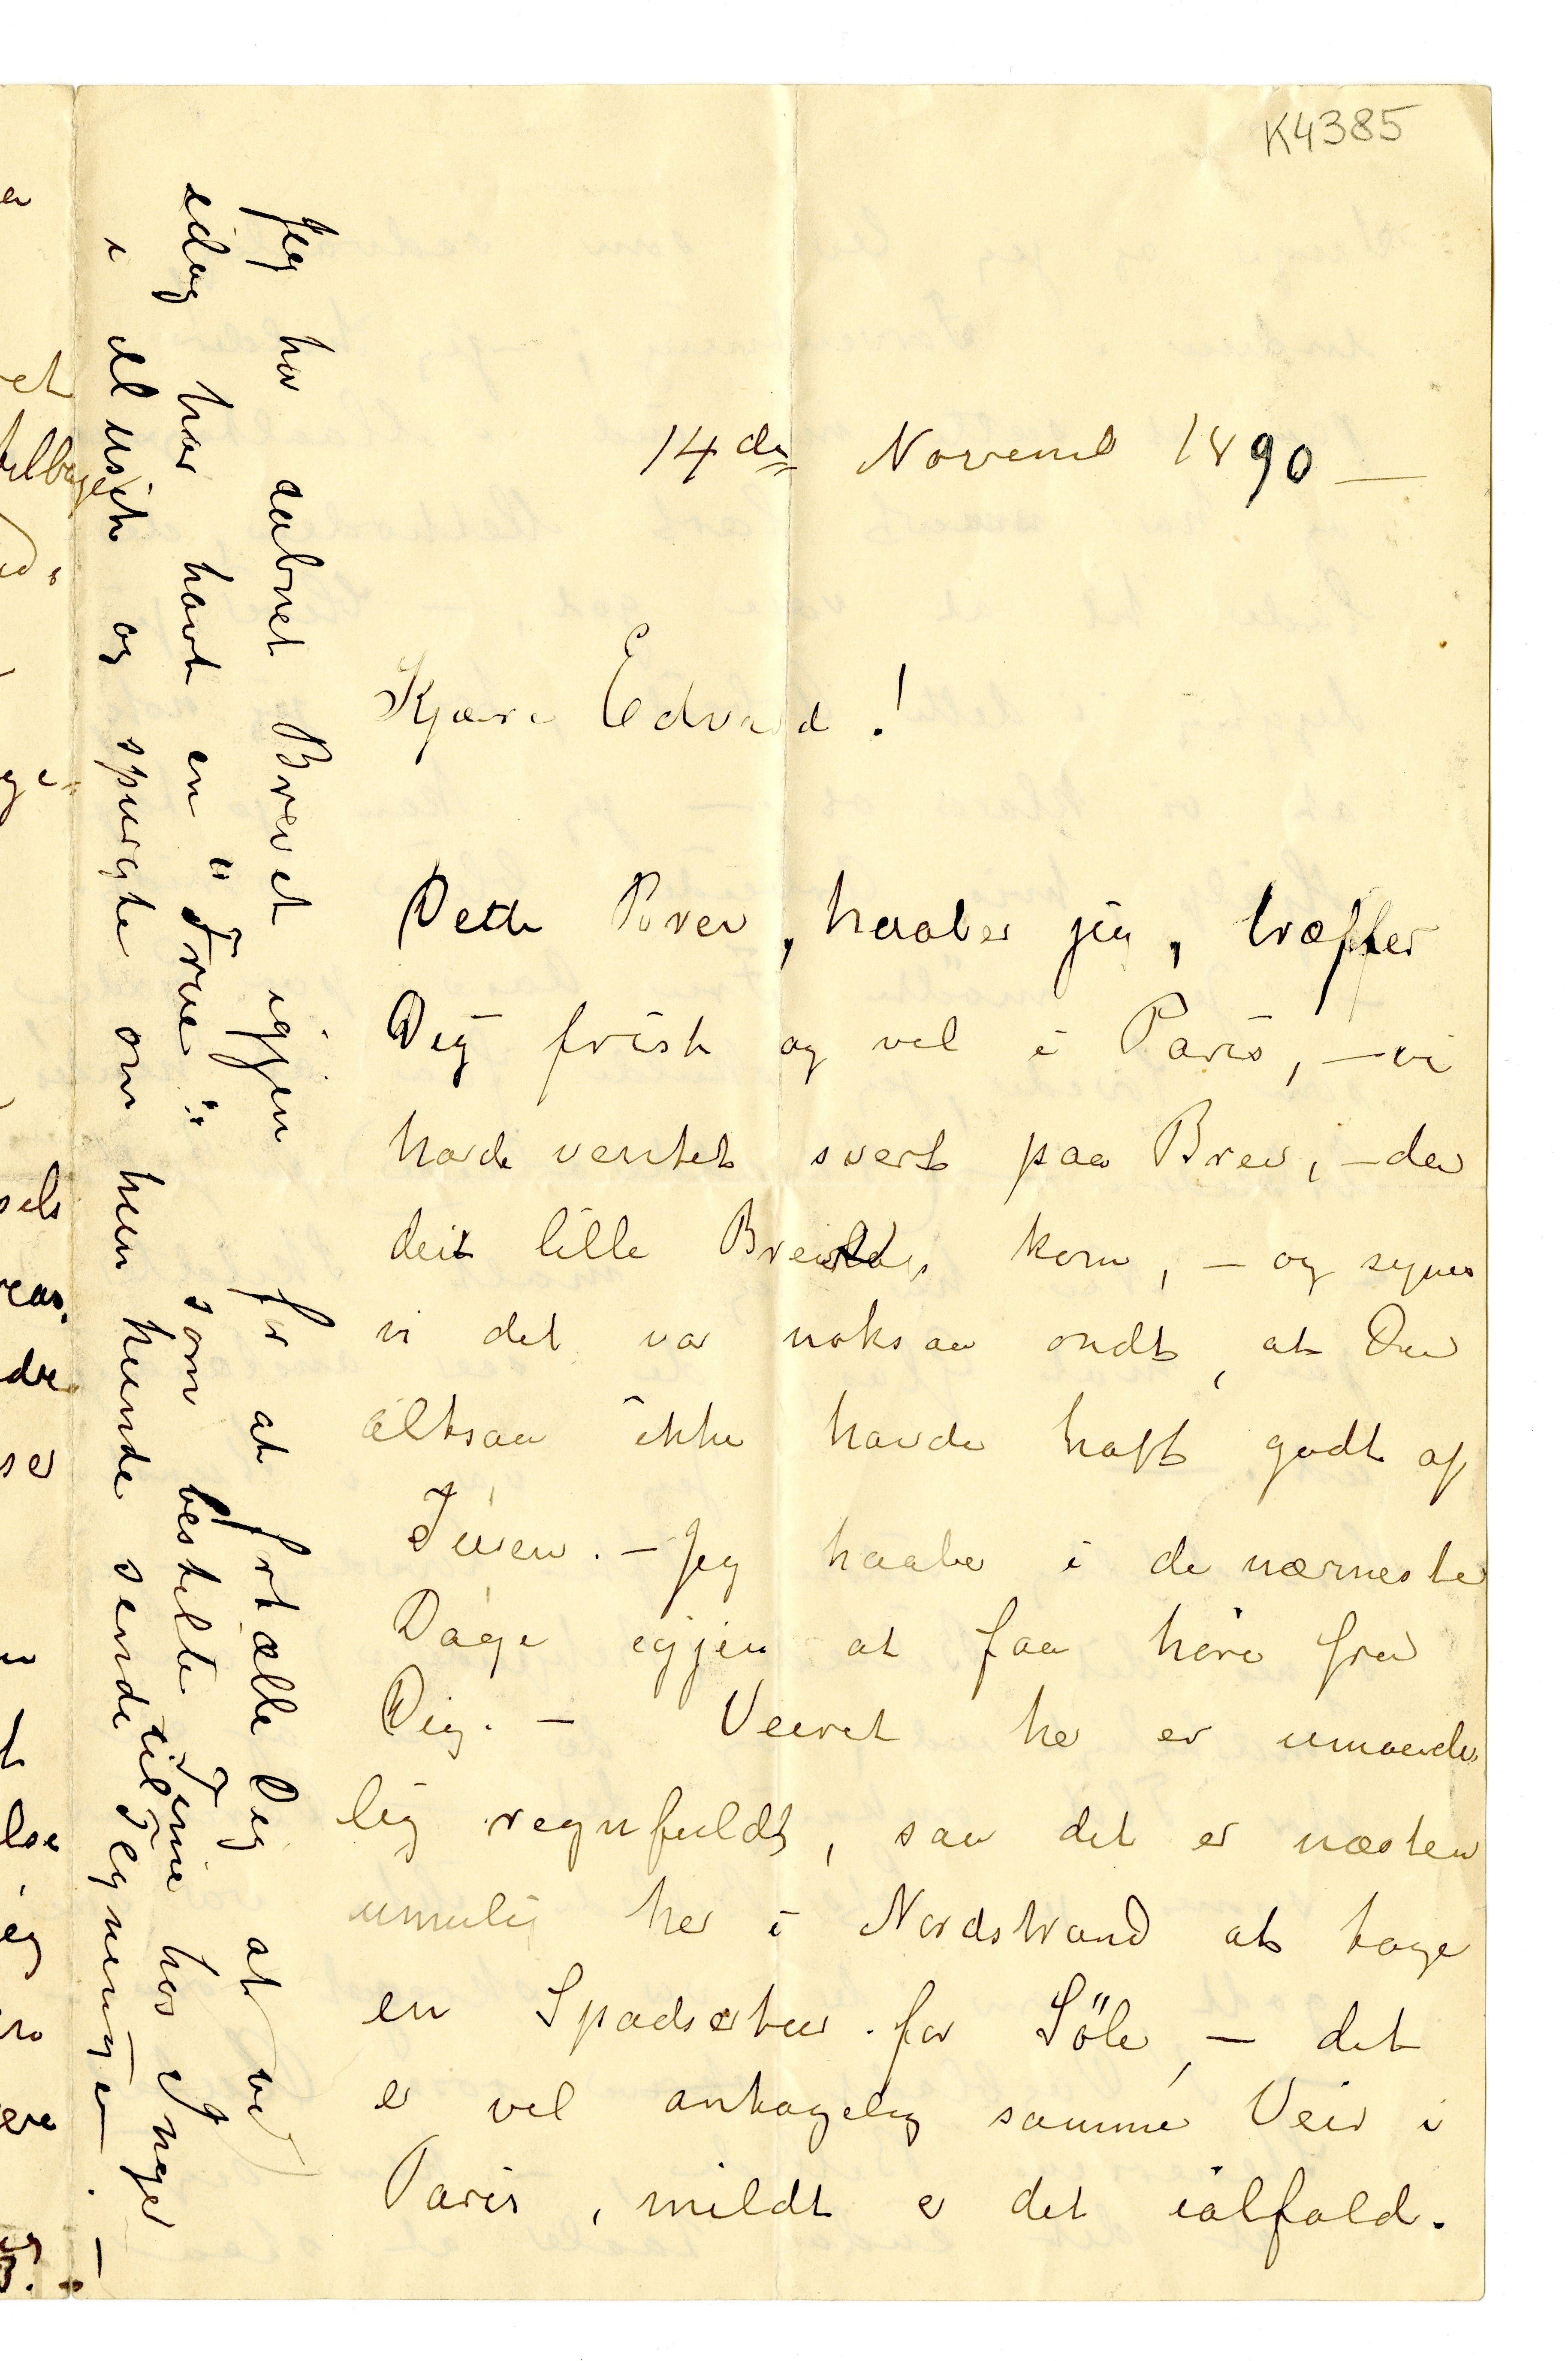 K4385
14de Novemb 1890 —
Kjære Edvard!
Dette Brev, haaber jeg, træffer
Dig frisk og vel i Paris, — vi
havde ventet svert paa Brev, — da
deit lille Brev kom, — og synes
vi det var noksaa ondt, at Du
altsaa ikke havde haft godt af
Turen. — Jeg haaber i de nærmeste
Dage igjen at faa høre fra
Dig. — Veiret her er umaade
lig regnfuldt, saa det er næsten
umulig her i Nordstrand at tage
en Spadsertur for Søle, — det
er vel antagelig samme Veir i
Paris, mildt er det ialfald.
Jeg har aabnet Brevet igjen for at fortælle Dig at vi
idag har havt en "Frue" som bestilte Timer hos Inger
i Musik og spurgte om hun kunde sende til Tegninger. —
et
tilbage
sels
dre
ser
lse
eg
ere